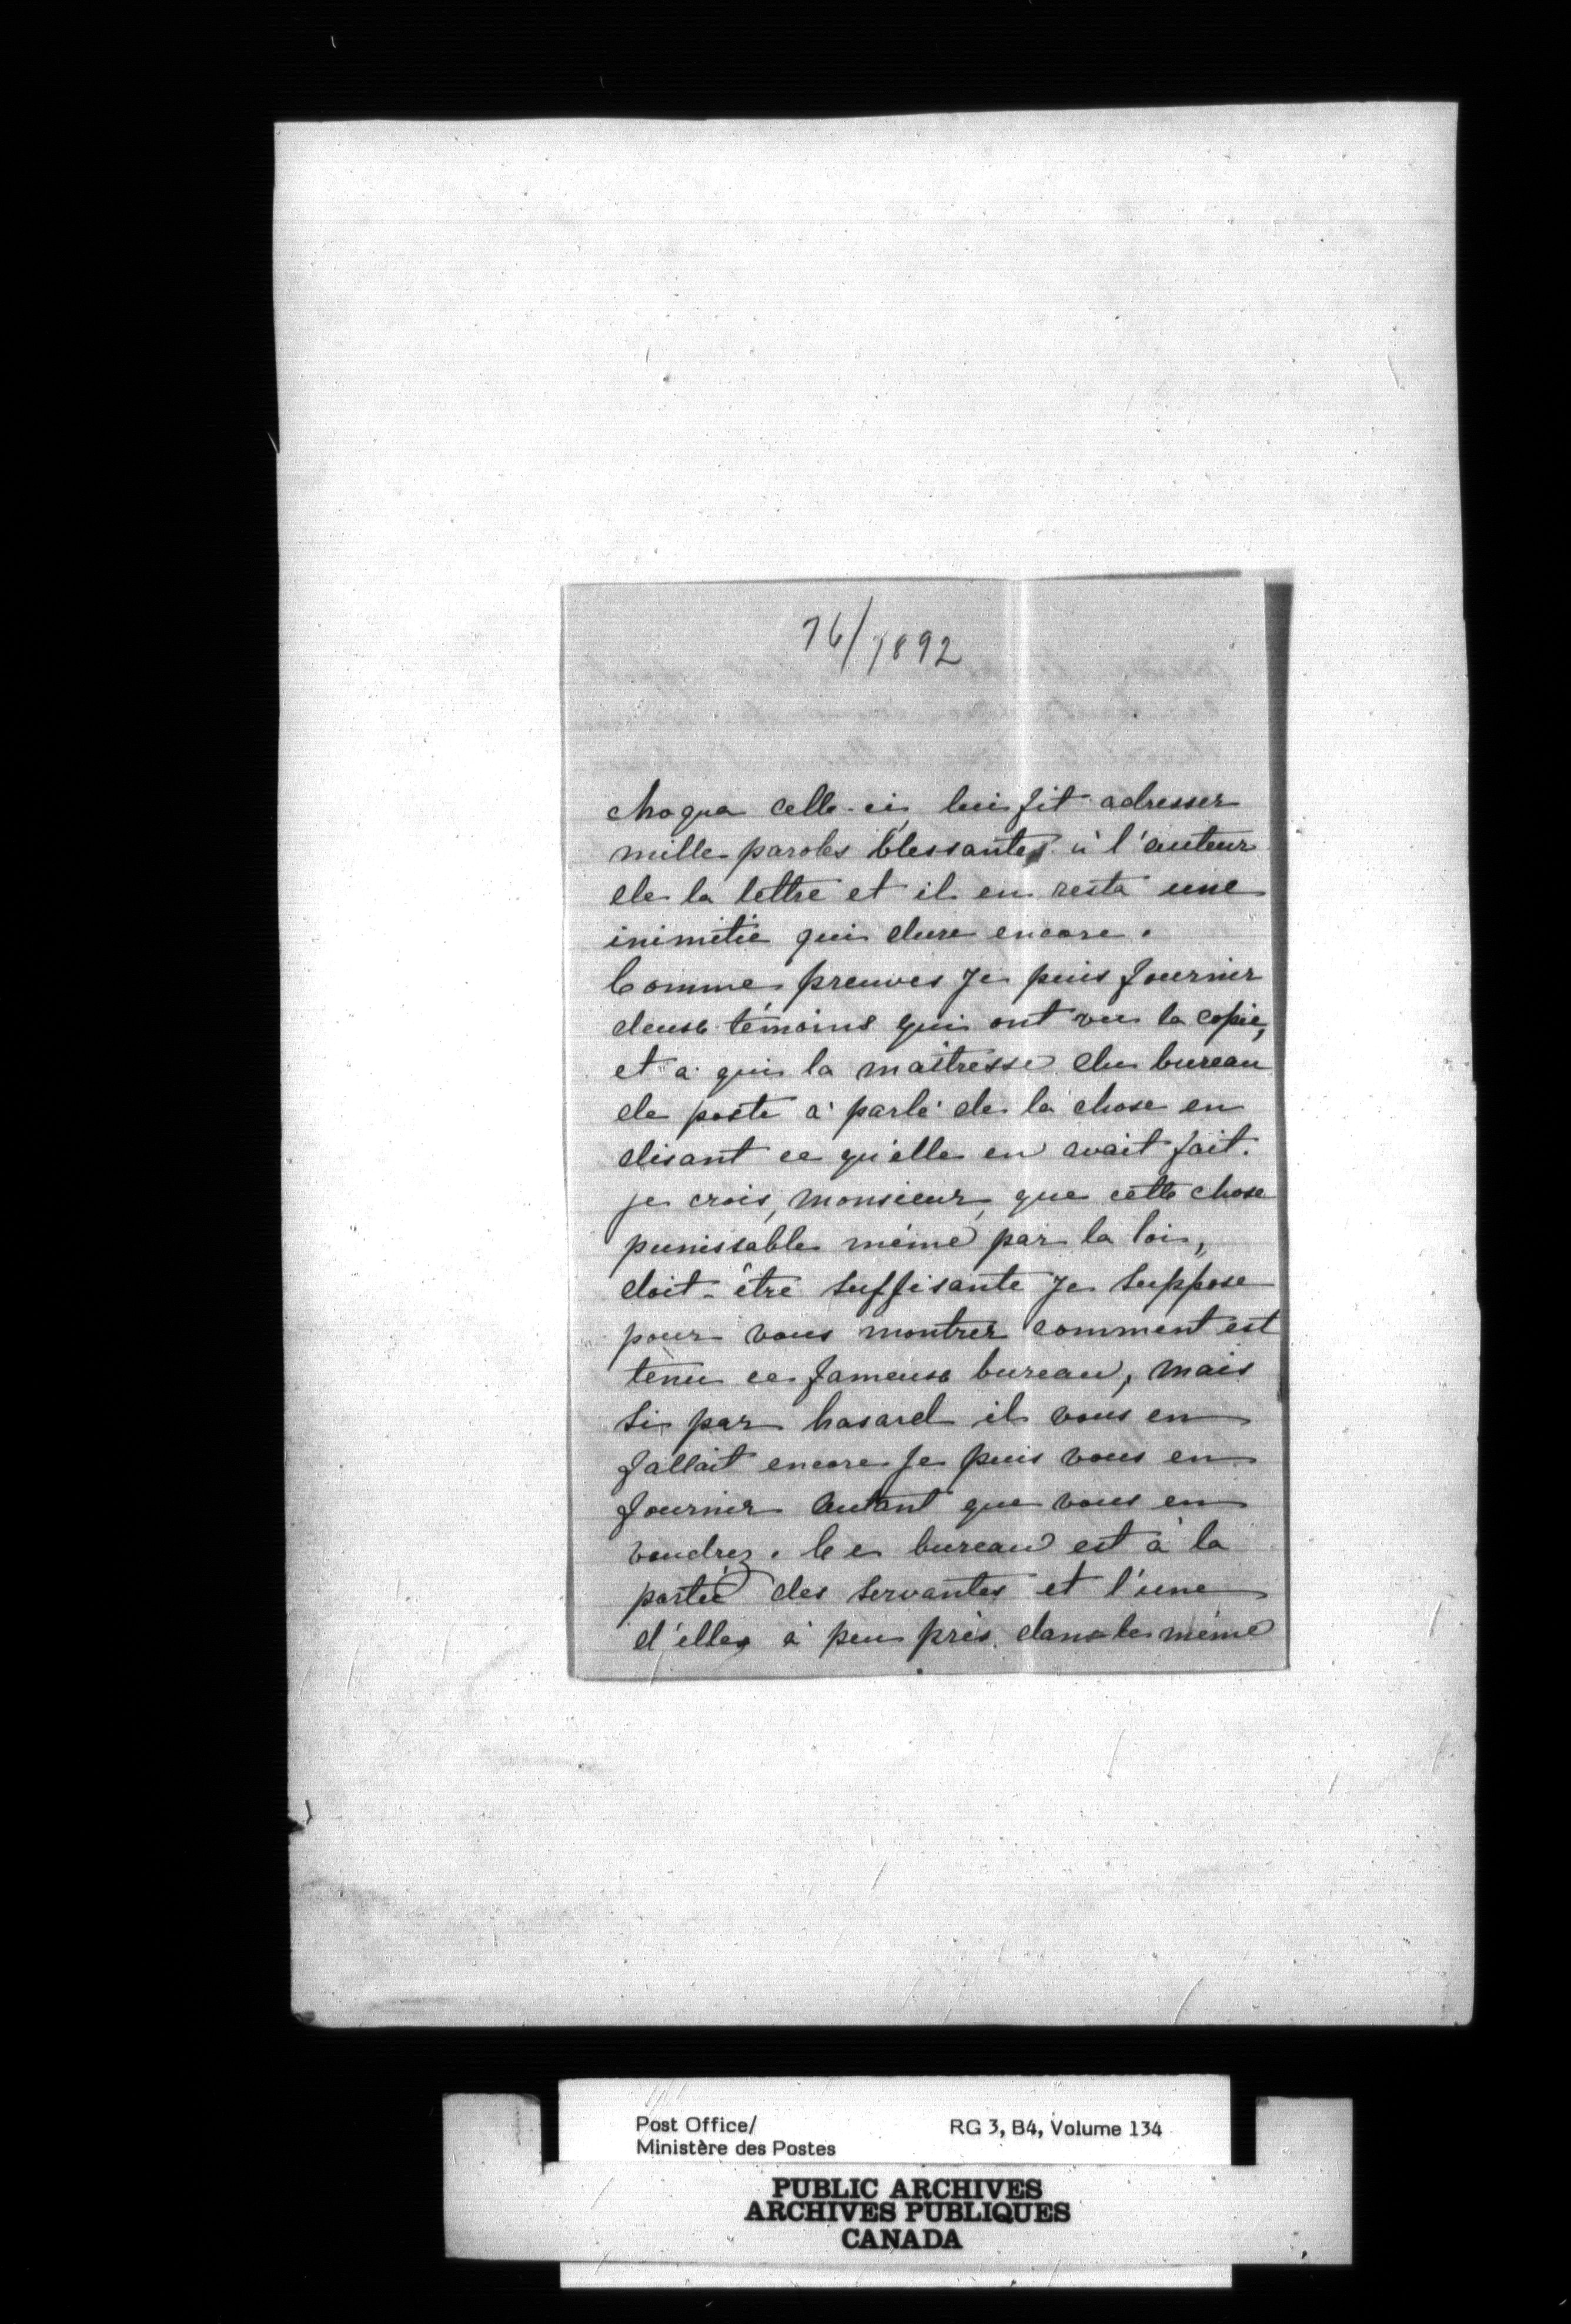 76/1892
choqua celle-ci, lui fit adresser
mille paroles blessantes à l'auteur
de la lettre et il en resta une
inimitié qui dure encore.
Comme preuves je puis fournir
deux témoins qui ont vu la copie,
et à qui la maîtresse du bureau
de poste a parlé de la chose en
disant ce qu'elle en avait fait.
je crois, monsieur, que cette chose
punissable même par la loi,
doit-être suffisante je suppose
pour vous montrer comment est
tenu ce fameux bureau, mais
si par hasard il vous en
fallait encore je puis vous en
fournir autant que vous en
voudrez. Ce bureau est à la
portée des servantes et l'une
d'elles à peu près dans le même
Post Office/
Ministère des Postes
RG 3, B4, Volume 134
PUBLIC ARCHIVES
ARCHIVES PUBLIQUES
CANADA